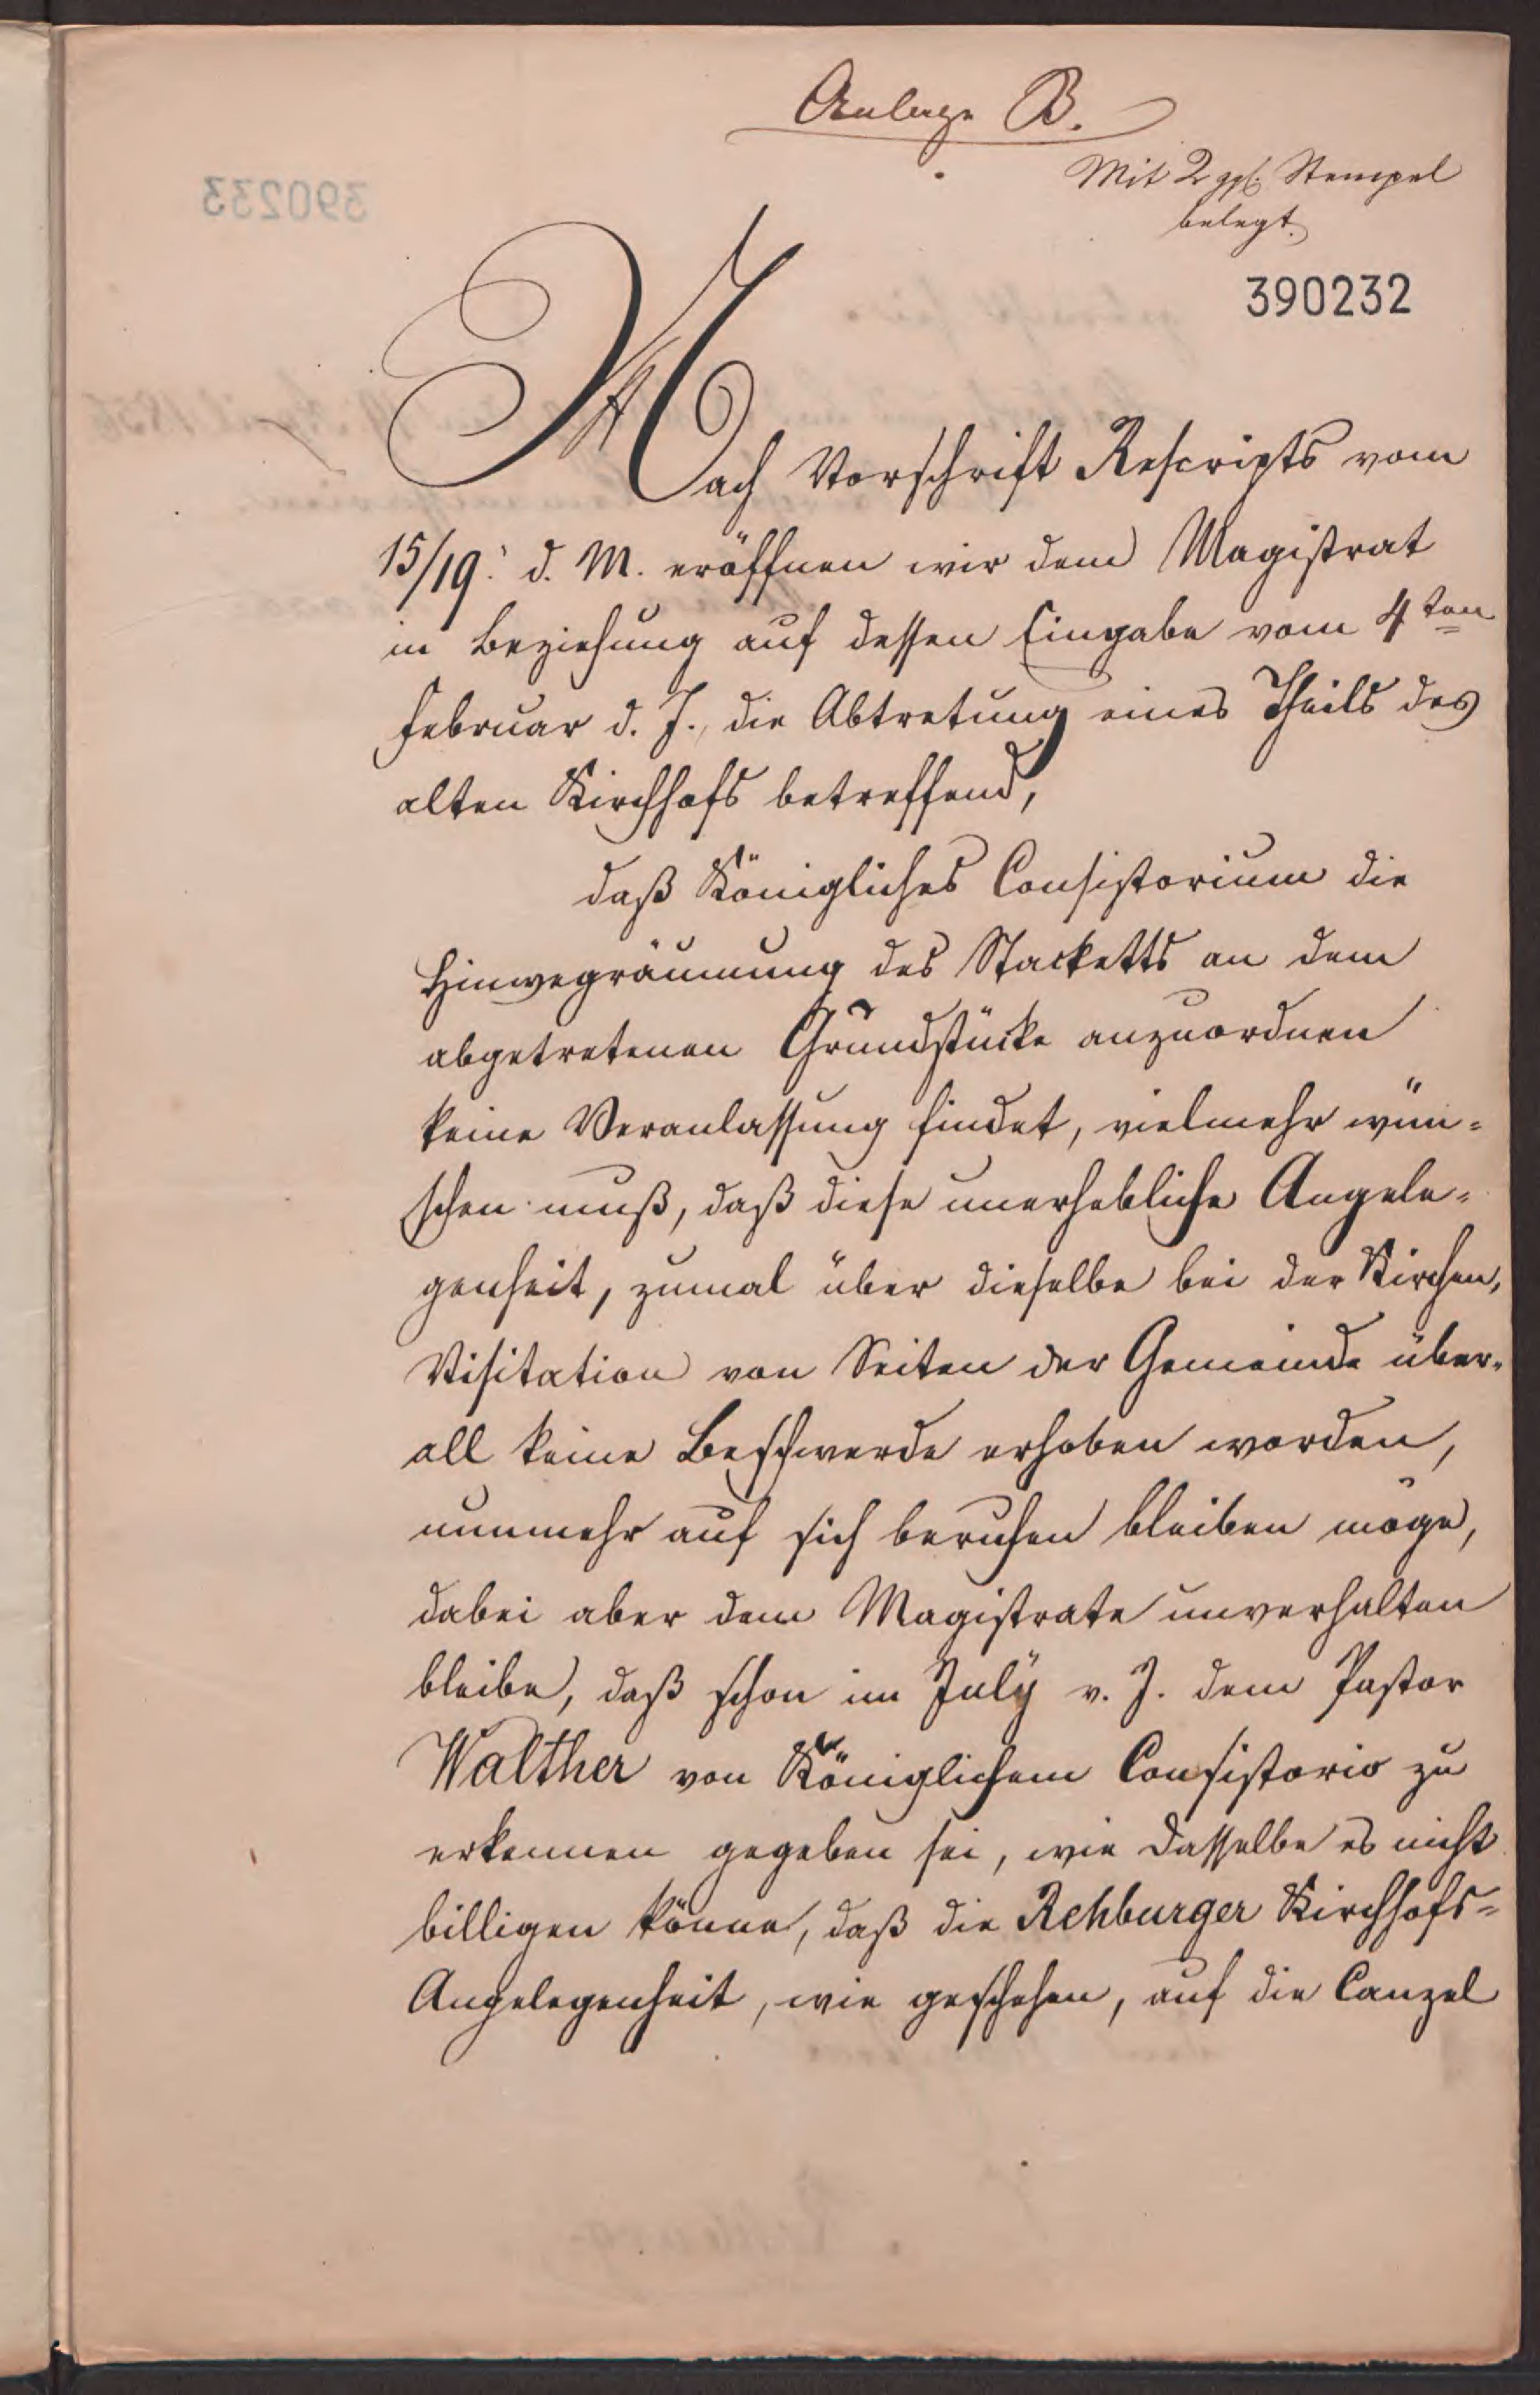 Anlage B.
Mit 2 ggl. Stempel
belegt.
390233
390232
Nach Vorschrift Rescripts vom
15/19. d. M. eröffnen wir dem Magistrat
in Beziehung auf dessen Eingabe vom 4ten
Februar d. J., die Abtretung eines Theils des
alten Kirchhofs betreffend,
daß Königliches Consistorium die
Hinwegräumung des Stacketts an dem
abgetretenen Grundstücke anzuordnen
keine Veranlassung findet, vielmehr wün=
schen muß, daß diese unerhebliche Angele=
genheit, zumal über dieselbe bei der Kirchen,
Visitation von Seiten der Gemeinde über=
all keine Beschwerde erhoben worden,
nunmehr auf sich beruhen bleiben möge,
dabei aber dem Magistrate unverhalten
bleibe, daß schon im July v. J. dem Pastor
Walther von Königlichem Consistorio zu
erkennen gegeben sei, wie dasselbe es nicht
billigen könne, daß die Rehburger Kirchhofs=
Angelegenheit, wie geschehen, auf die Canzel